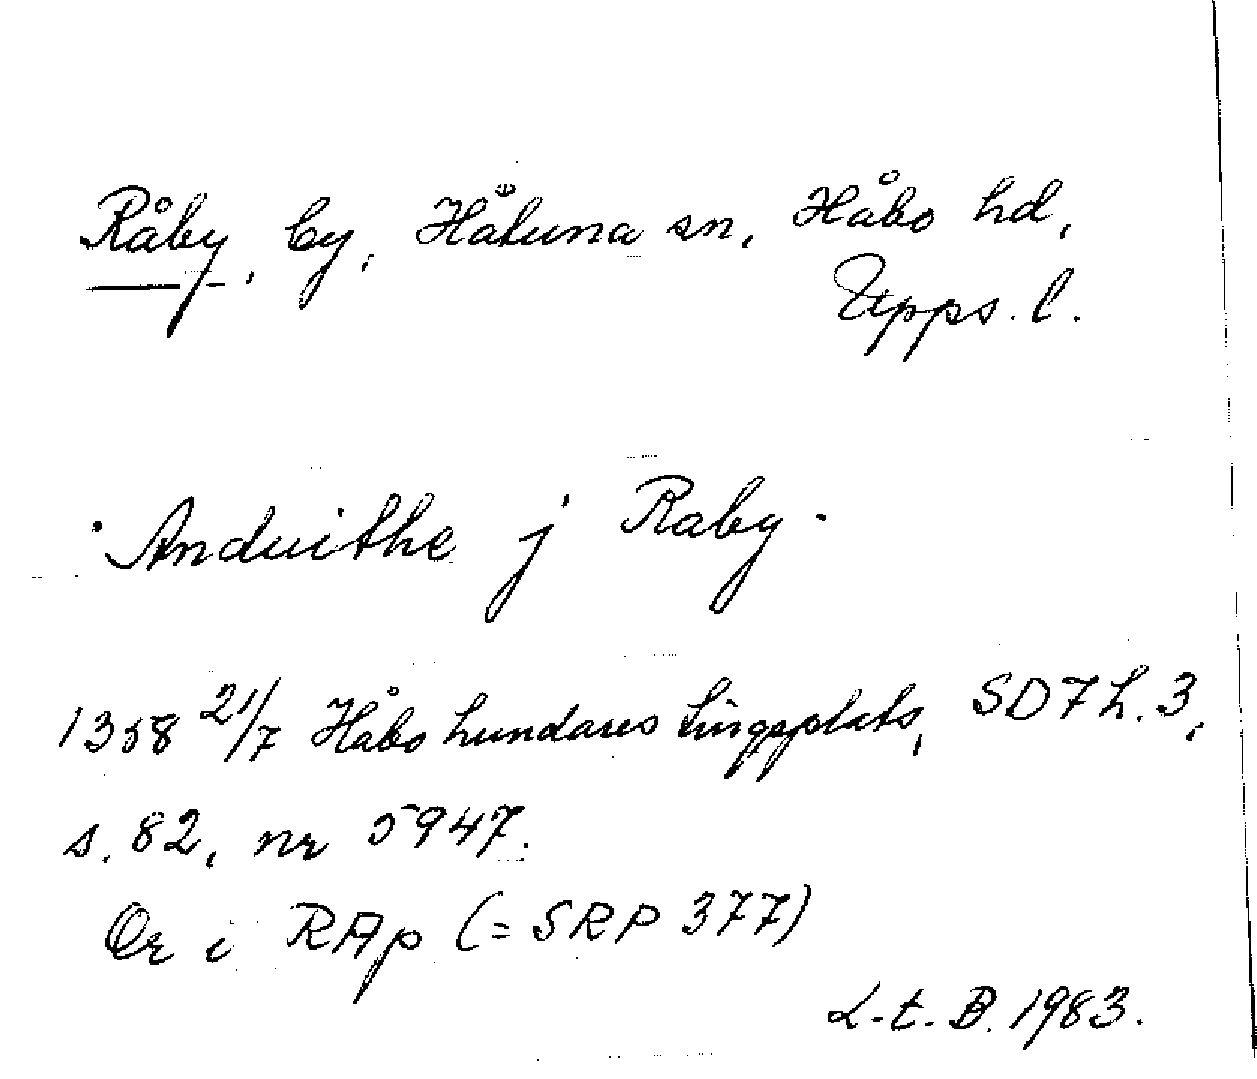 Råby, by, Håtuna sn, Håbo hd,
Upps. l.
"Anduithe j Raby"
1358 21/7 Håbo hundares tingsplats, SD 7 h. 3,
s. 82, nr 5947.
Or i RAp (= SRP 377)
L.t.B. 1983.